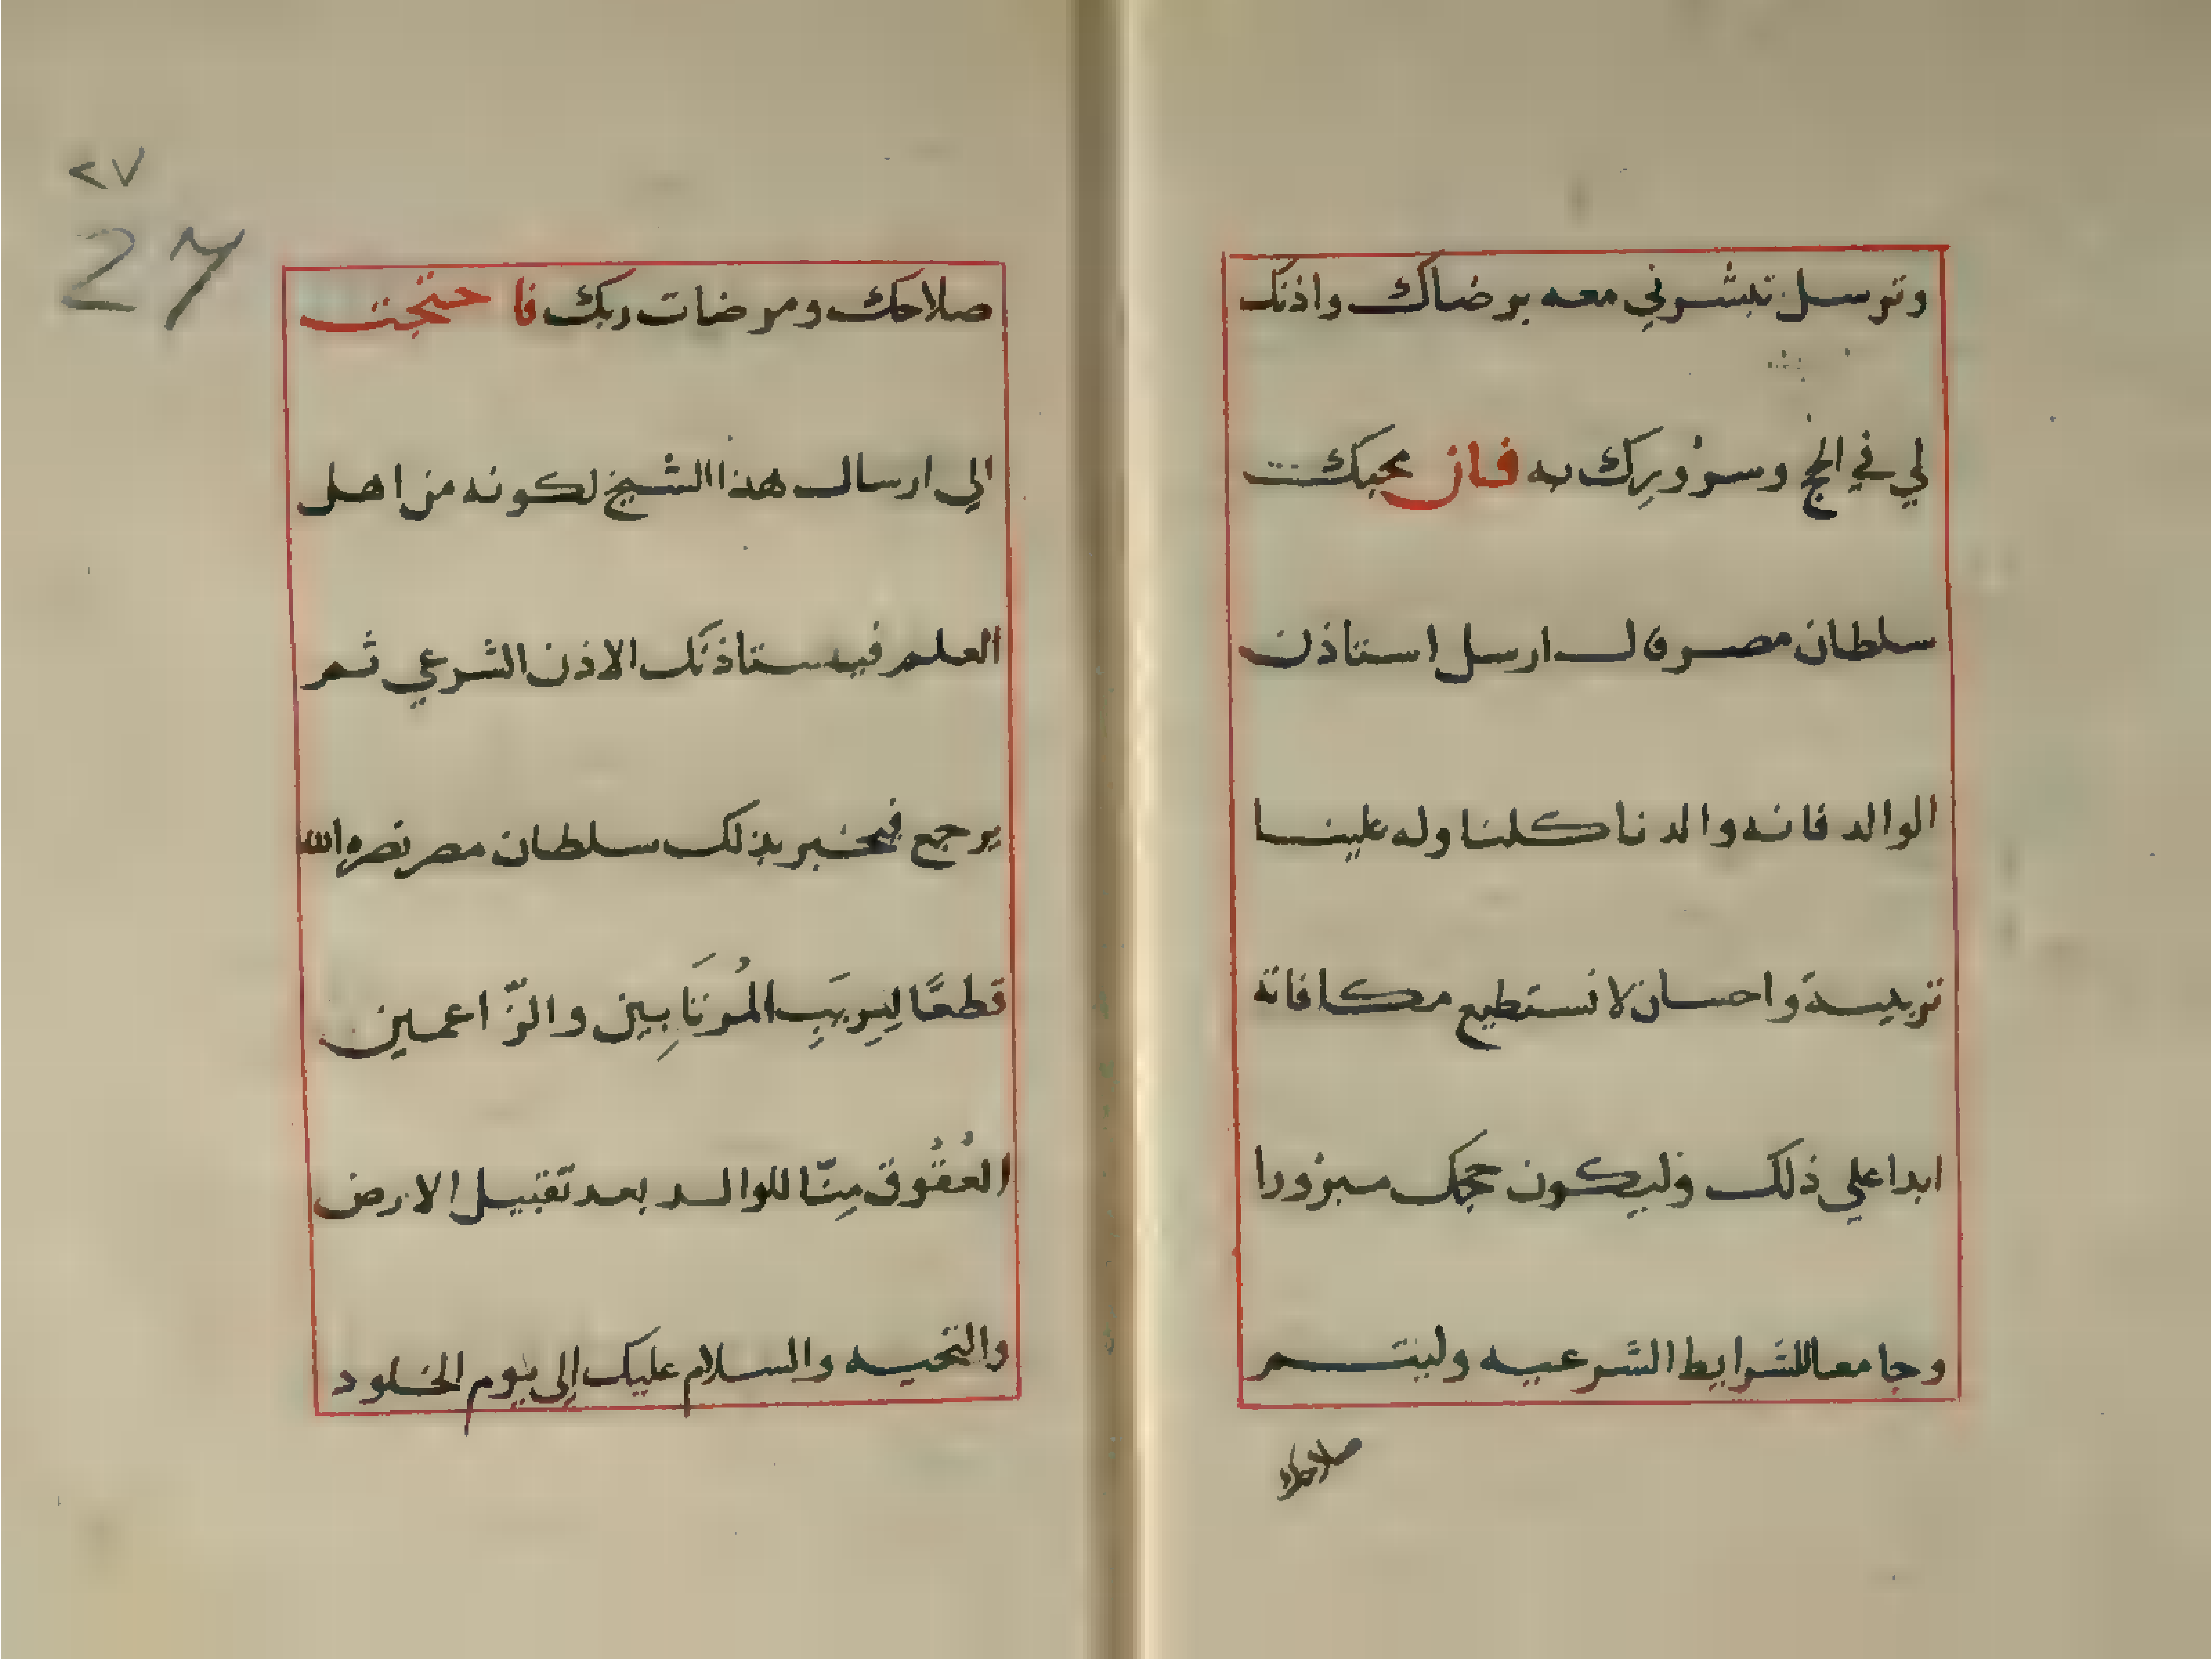 وترسل تبشرني معه برضاك واذنك
لي في الحج وسروررك به فان محبك
سلطان مصر قال ارسل استاذن
الوالد فانه والدنا كلنا وله علينا
تربية واحسان لا نستطيع مكافاته
ابدا علي ذلك وليكون حجك مبرورا
وجامعا للشرايط الشرعيه وليتم
صلاحك
٢٧
27
صلاحك ومرضات ربك فا حتجت
الي ارسال هذا الشيخ لكونه من اهل
العلم فيستاذنك الاذن الشرعي ثم
يرجع فيخبر بذلك سلطان مصر نصره الله
قطعًا لِرِيَبِ المُرتَابِين والزّاعمين
العُقُوق مِنّا للوالد بعد تقبيل الارض
والتحيه والسلام عليك إلى يوم الخلود